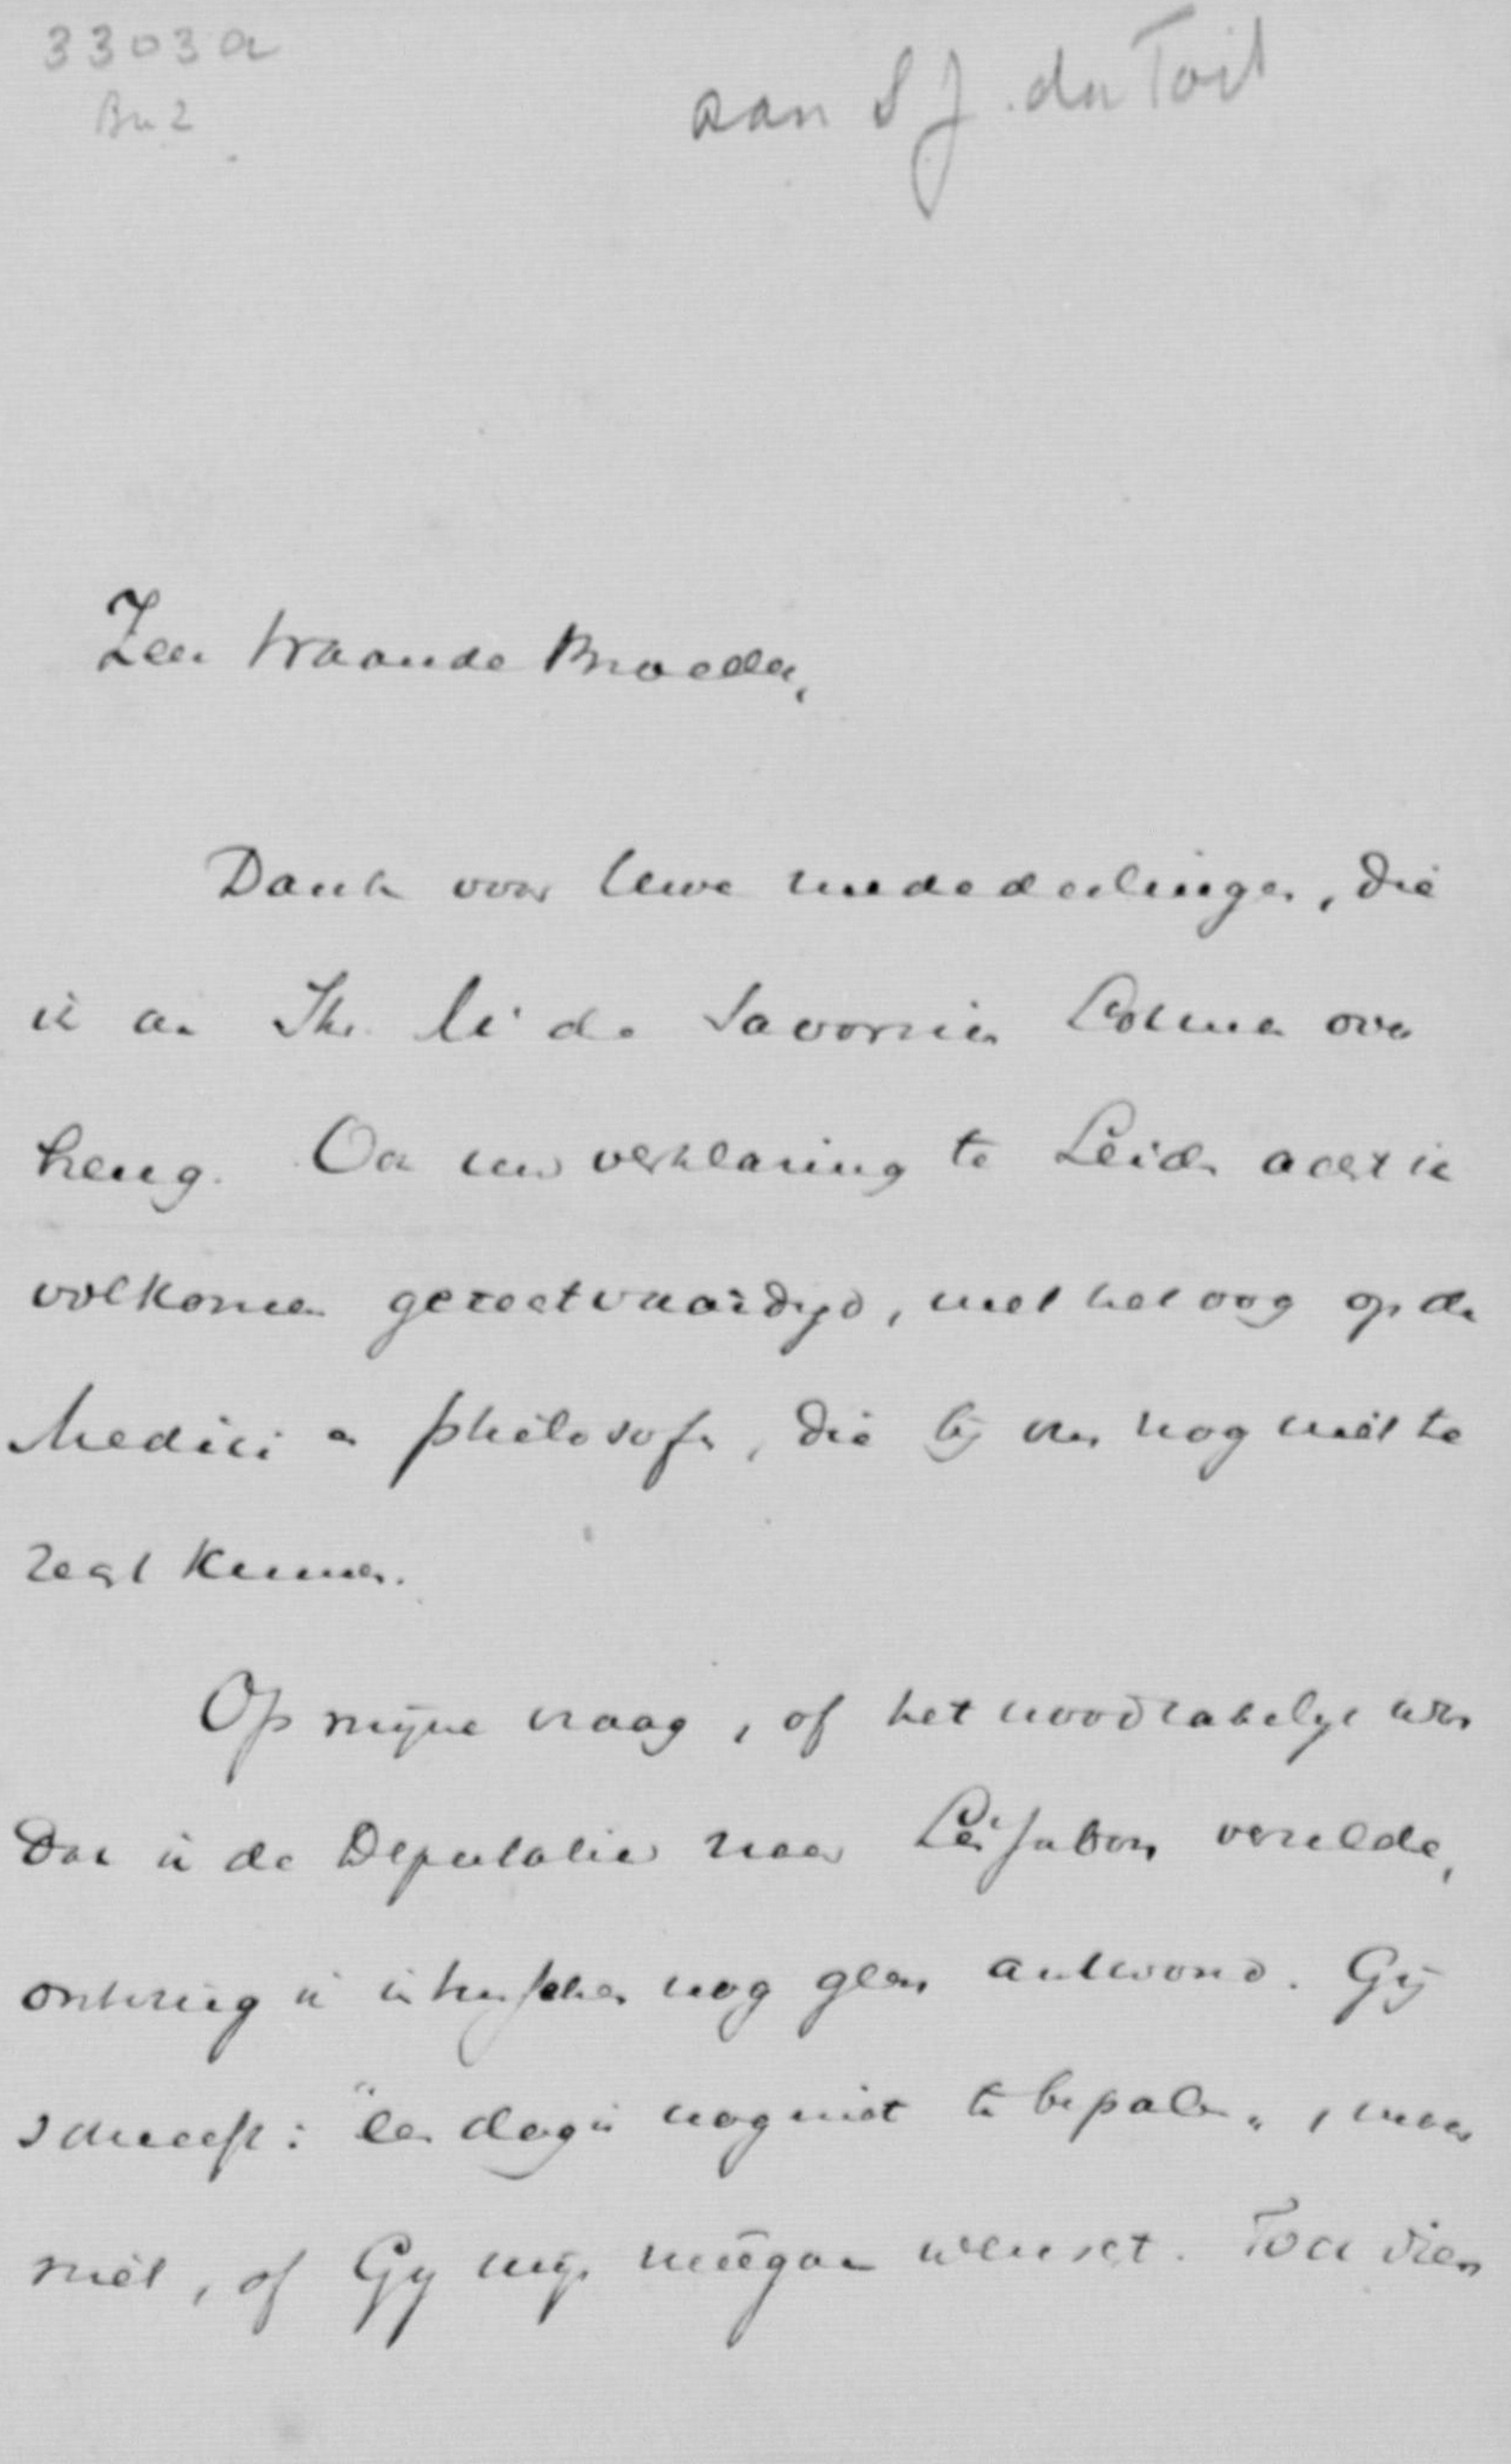 3303a
Bu 2
aan S J. du Toit
Zeer Waarde Broeder,
Dank voor Uwe mededeelingen, die
ik aan Jhr. de Savornin Lohman over
breng. Ook uw verklaring te Leiden acht ik
volkomen gerechtvaardigd, met het oog op de
Medici en philosofen, die bij ons nog niet te
recht kunnen.
Op mijne vraag, of het noodzakelijk was
dat ik de Deputatie naar Lissabon verzelde,
ontving ik intusschen nog geen antwoord. Gij
schreeft: "de dag is nog niet te bepalen", maar
niet, of Gij mijn meêgaan wenscht. Toch dien